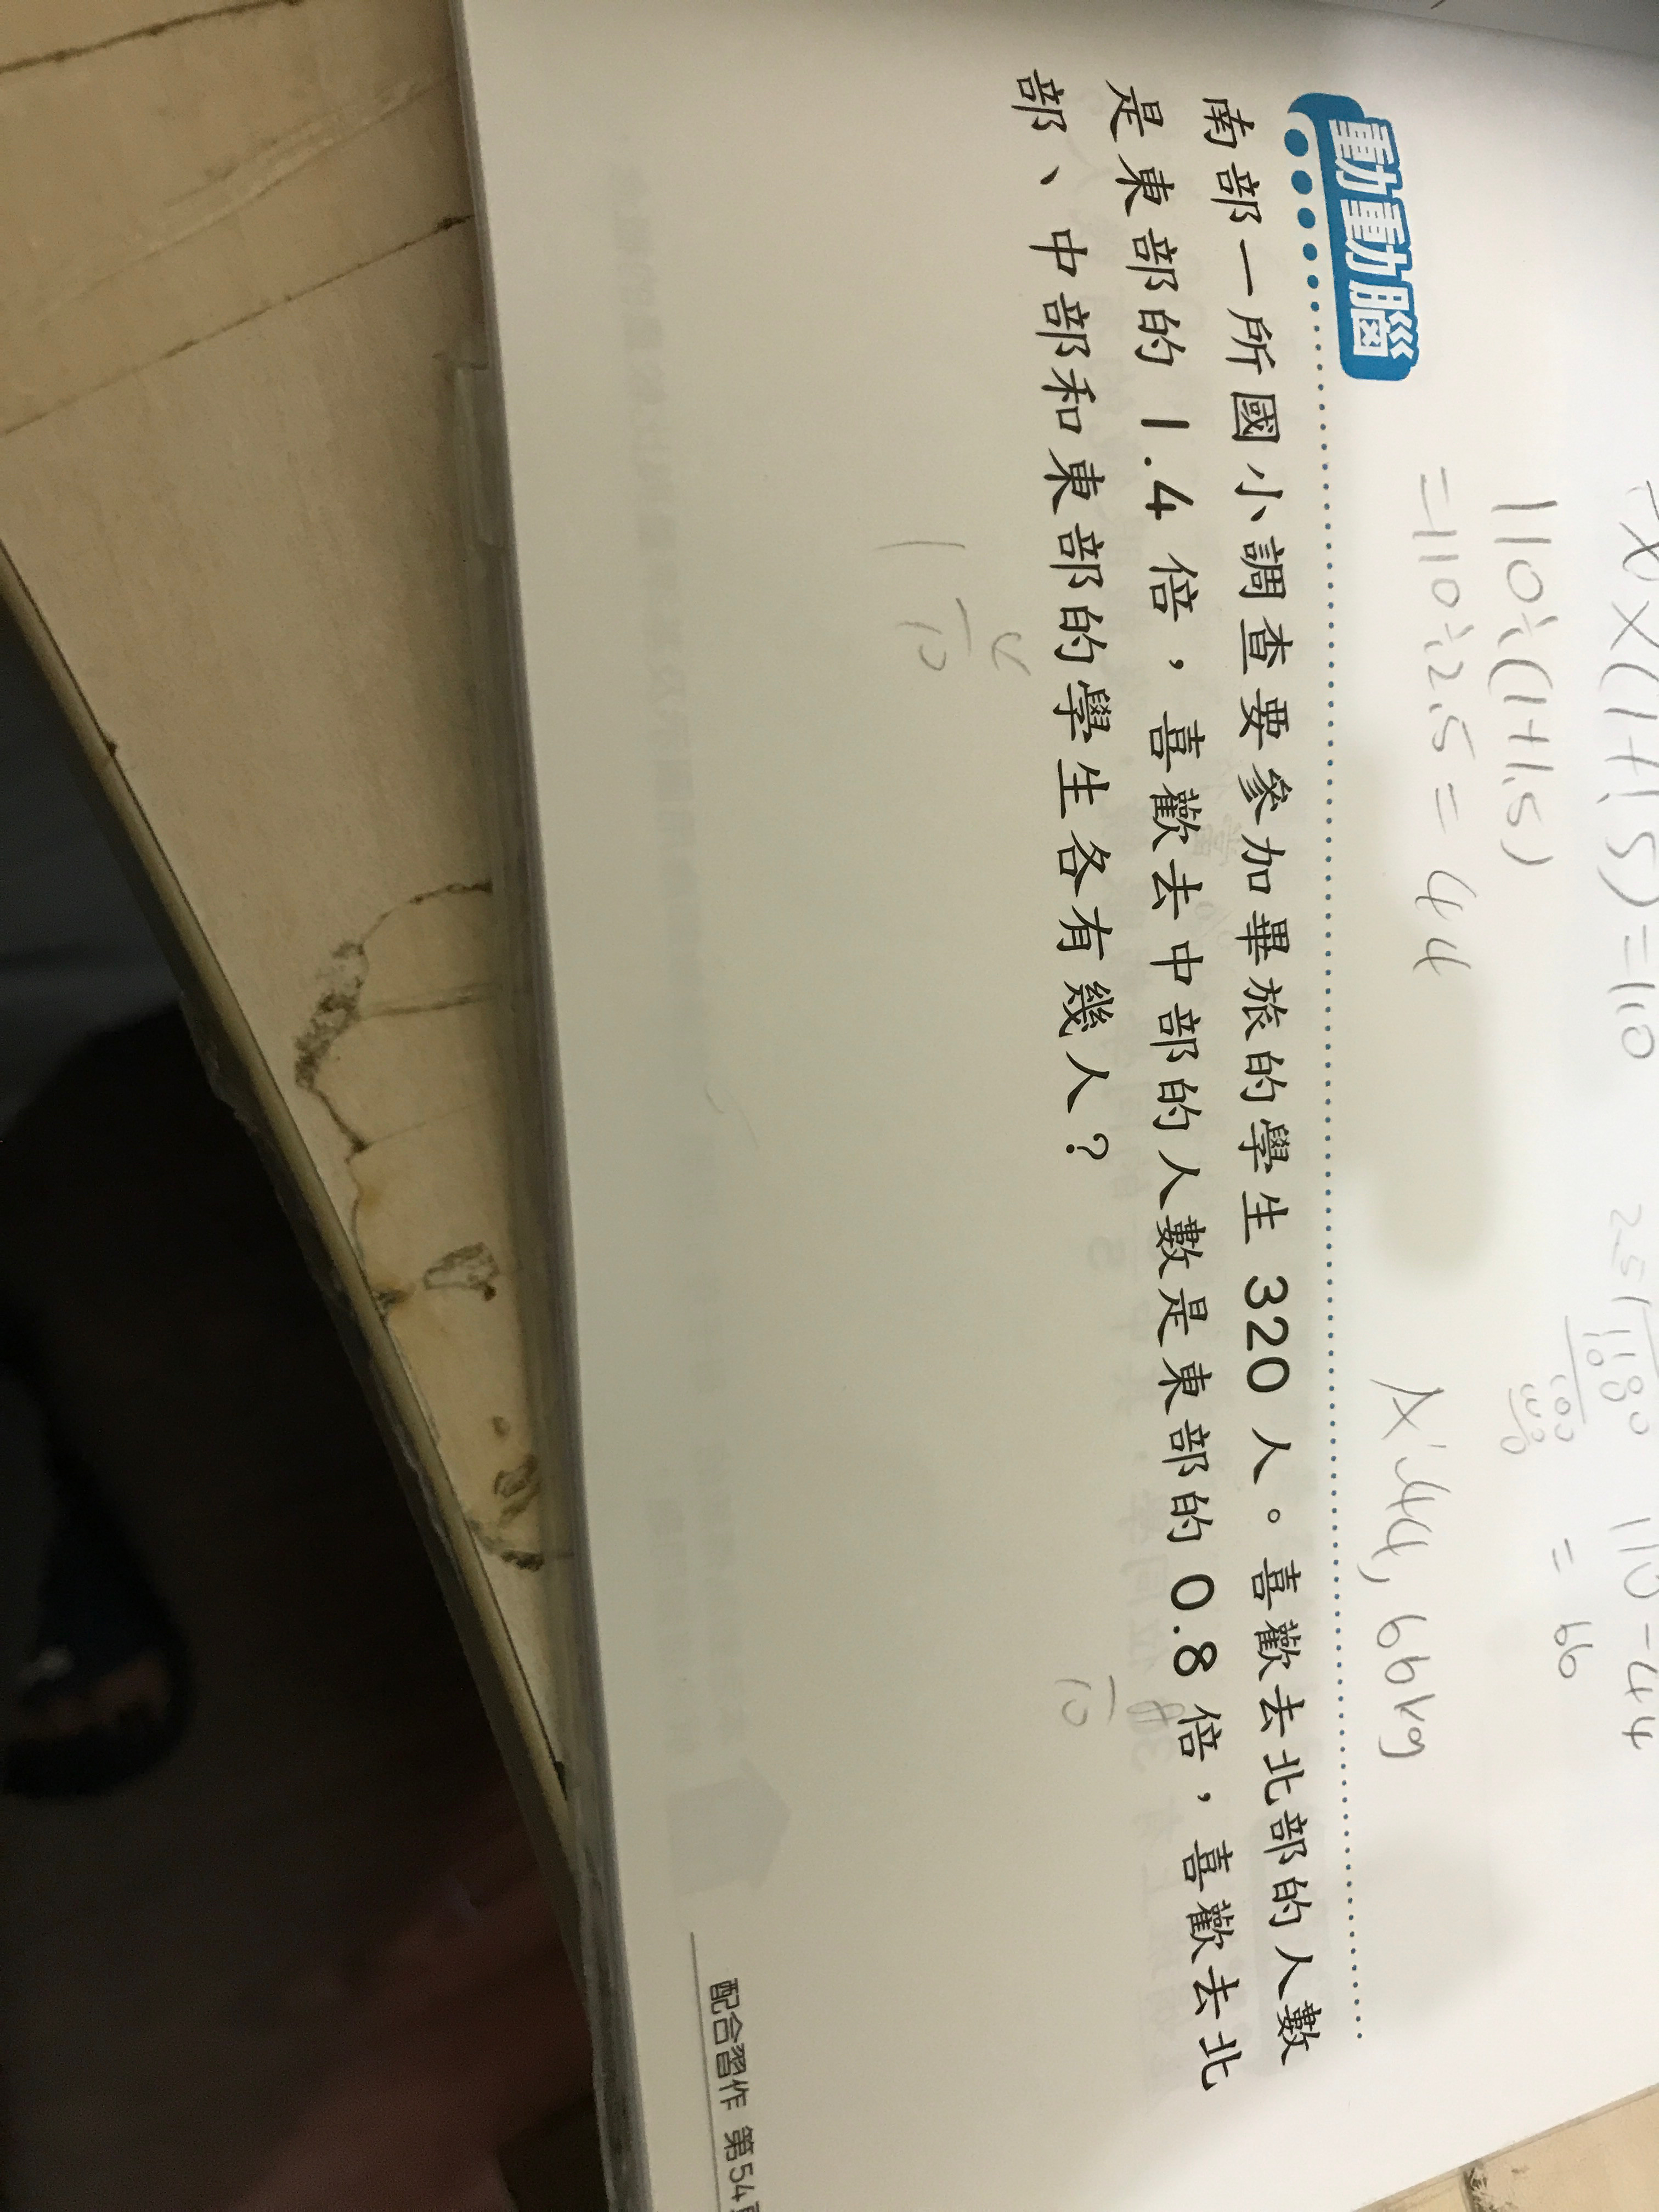 ×(1+1.5)=110
110÷(1+1.5)
=110÷2.5=44
110-44
=66
A:44,66kg
動動腦
南部一所國小調查要參加畢旅的學生 320 人。喜歡去北部的人數
是東部的 1.4 倍，喜歡去中部的人數是東部的 0.8 倍，喜歡去北
部、中部和東部的學生各有幾人？
配合習作 第54